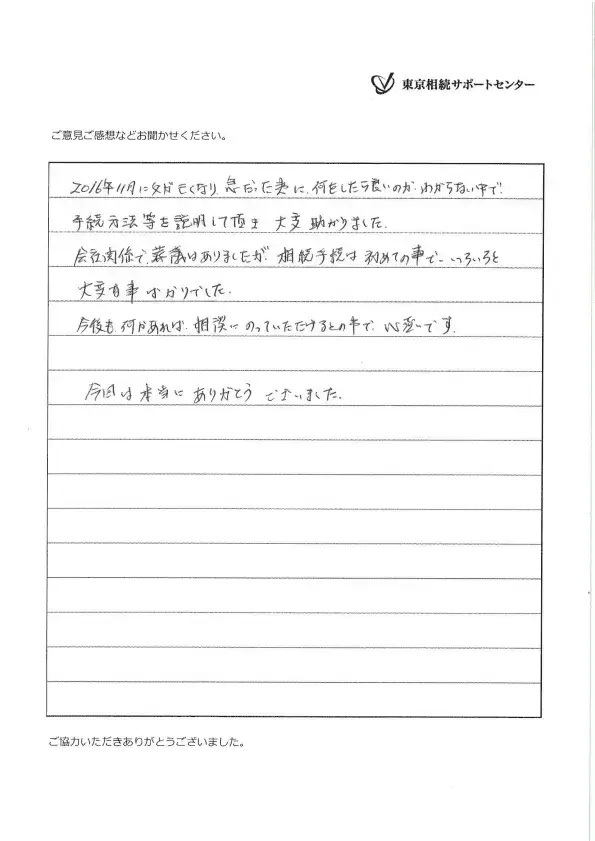 東京相続サポートセンター
ご意見ご感想などお聞かせください。
2016年11月に父が亡くなり、急だった事に、何をしたら良いのか、わからない中で、
手続方法等を説明して頂き 大変助かりました。
会社関係で、葬儀はありましたが、相続手続は初めての事で、いろいろと
大変な事ばかりでした。
今後も、何かあれば、相談にのっていただけるとの事で、心強いです。
今回は本当にありがとうございました。
ご協力いただきありがとうございました。